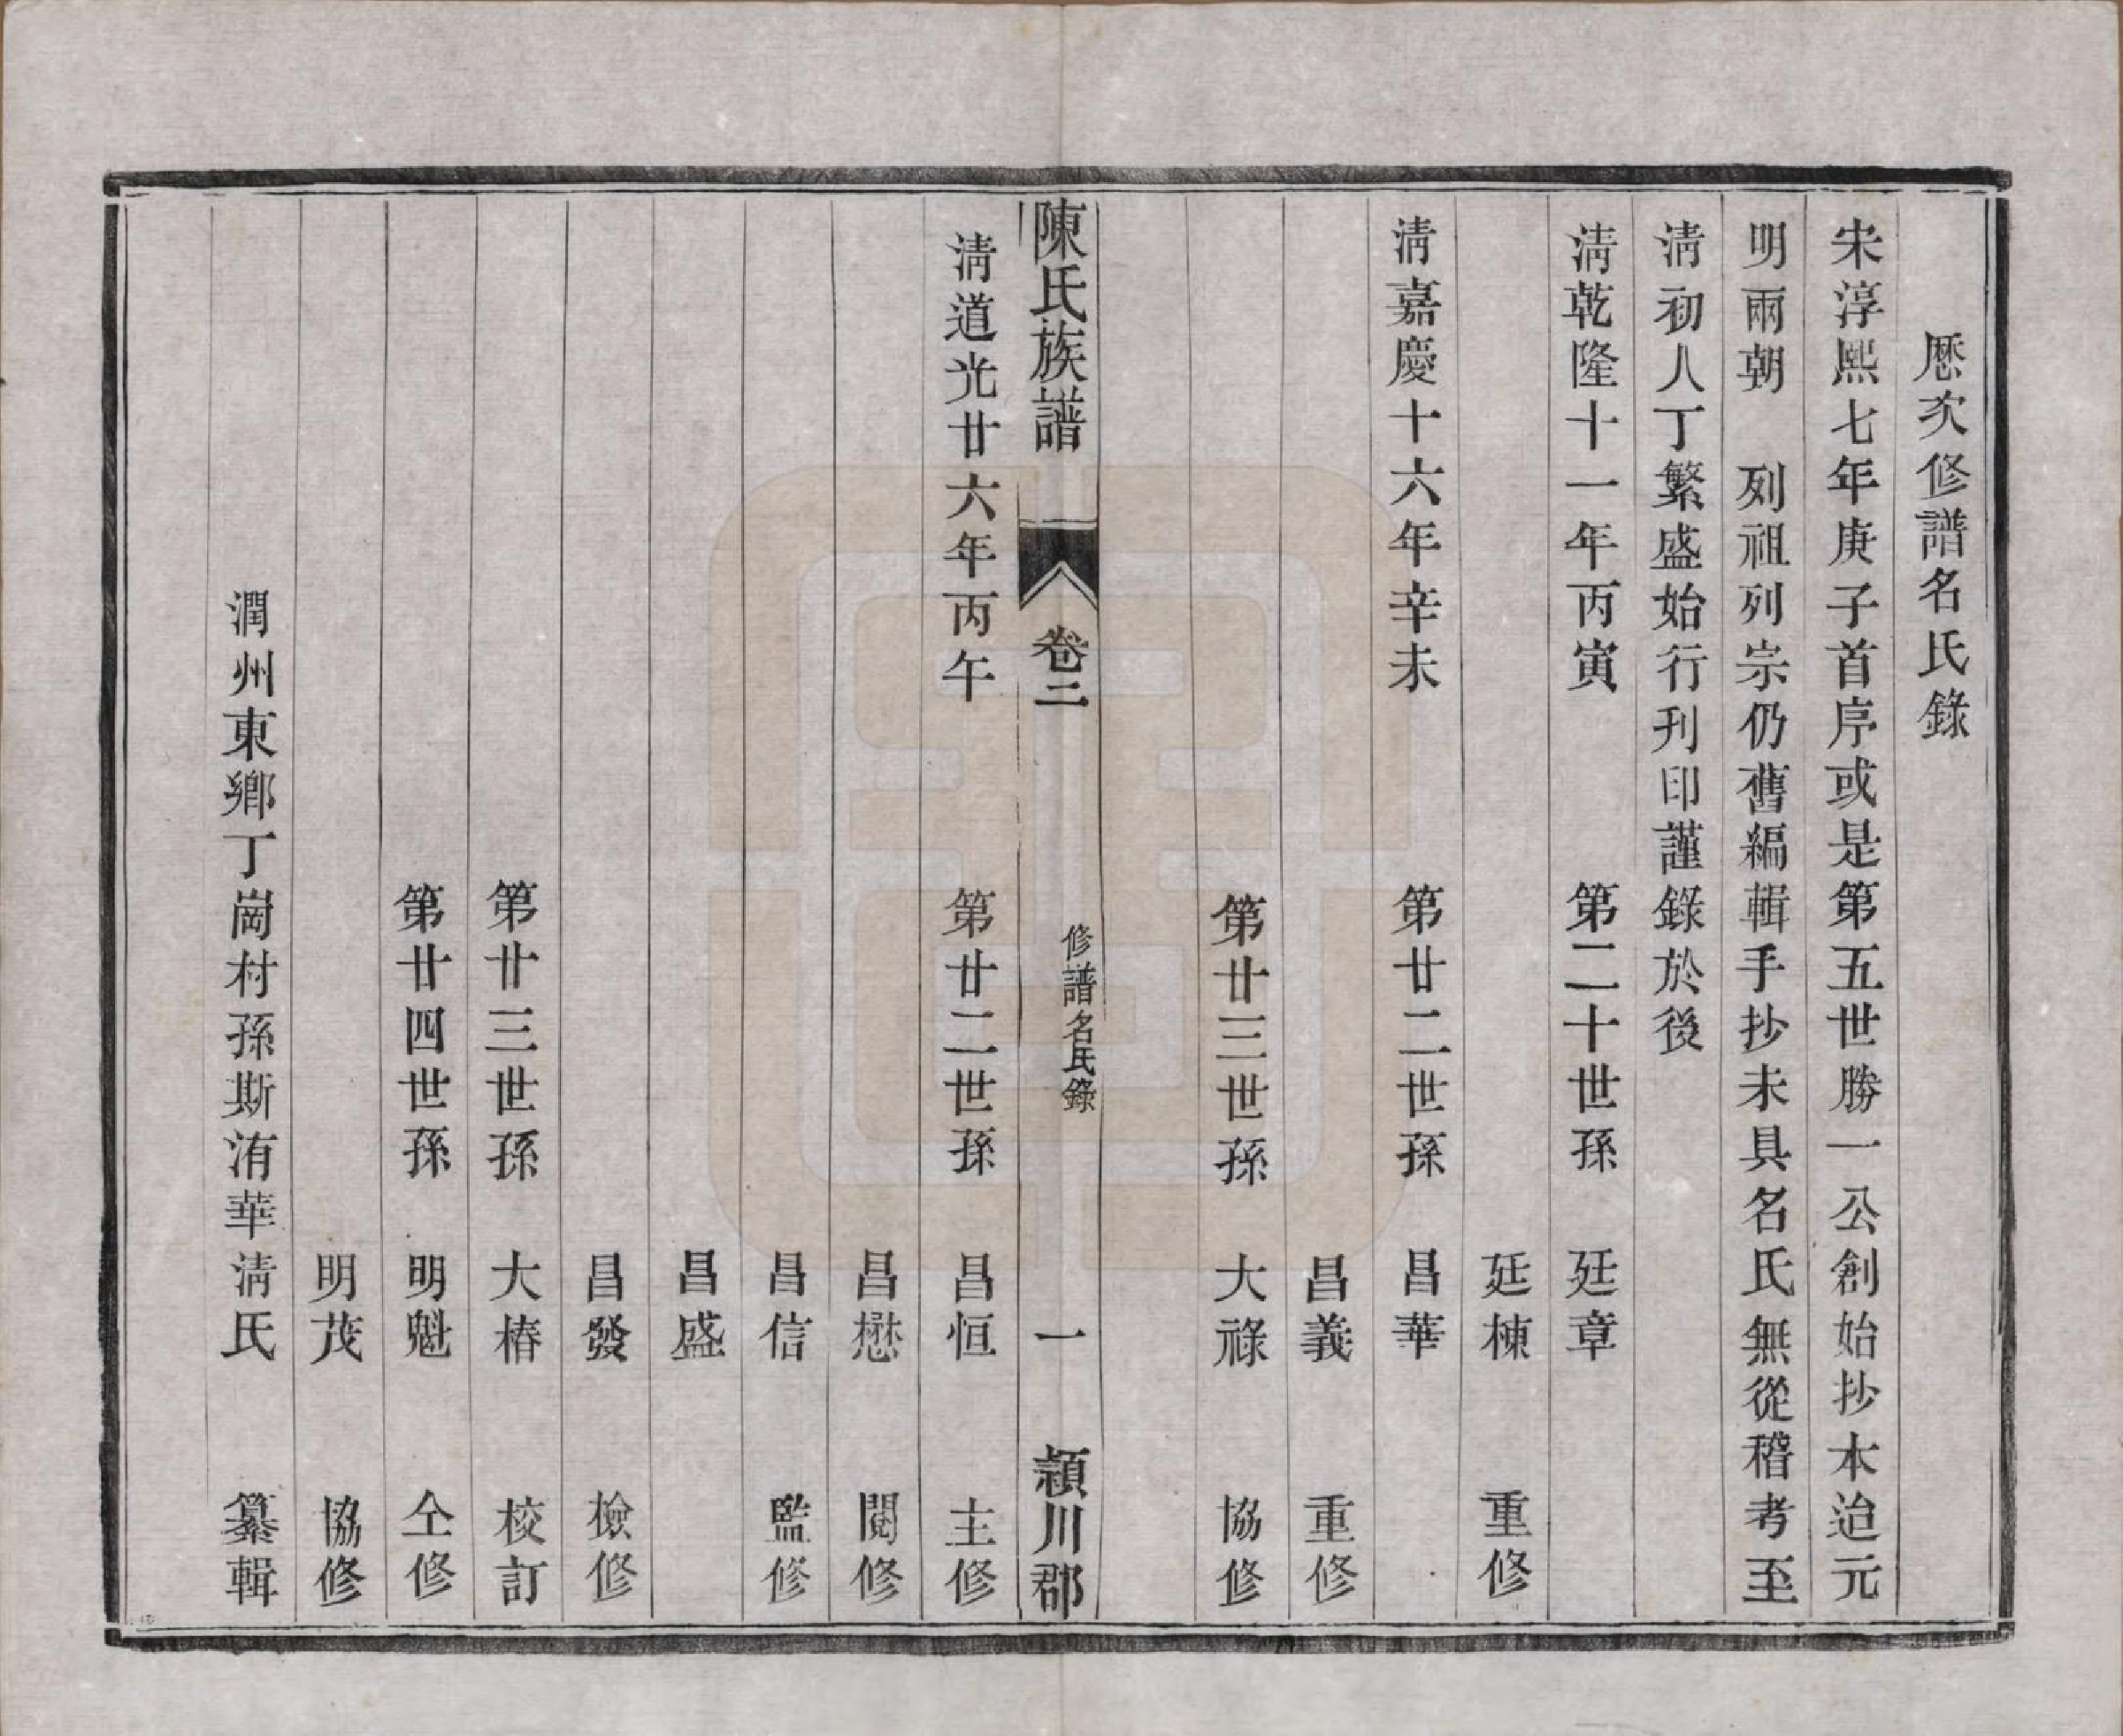 歷次修譜名氏錄
宋淳熙七年庚子首序或是第五世勝一公創始抄本迨元
明兩朝　列祖列宗仍舊編輯手抄未具名氏無從稽考至
清初人丁繁盛始行刊印謹錄於後
清乾隆十一年丙寅　第二十世孫　廷章
廷棟　重修
清嘉慶十六年辛未　第廿二世孫　昌華
昌義　重修
第廿三世孫　大祿　協修
陳氏族譜　卷二　修譜名氏錄　一　潁川郡
清道光廿六年丙午　第廿二世孫　昌恒　主修
昌懋　閱修
昌信　監修
昌盛
昌發　檢修
第廿三世孫　大椿　校訂
第廿四世孫　明魁　仝修
明茂　協修
潤州東鄉丁崗村孫斯洧華清氏　纂輯